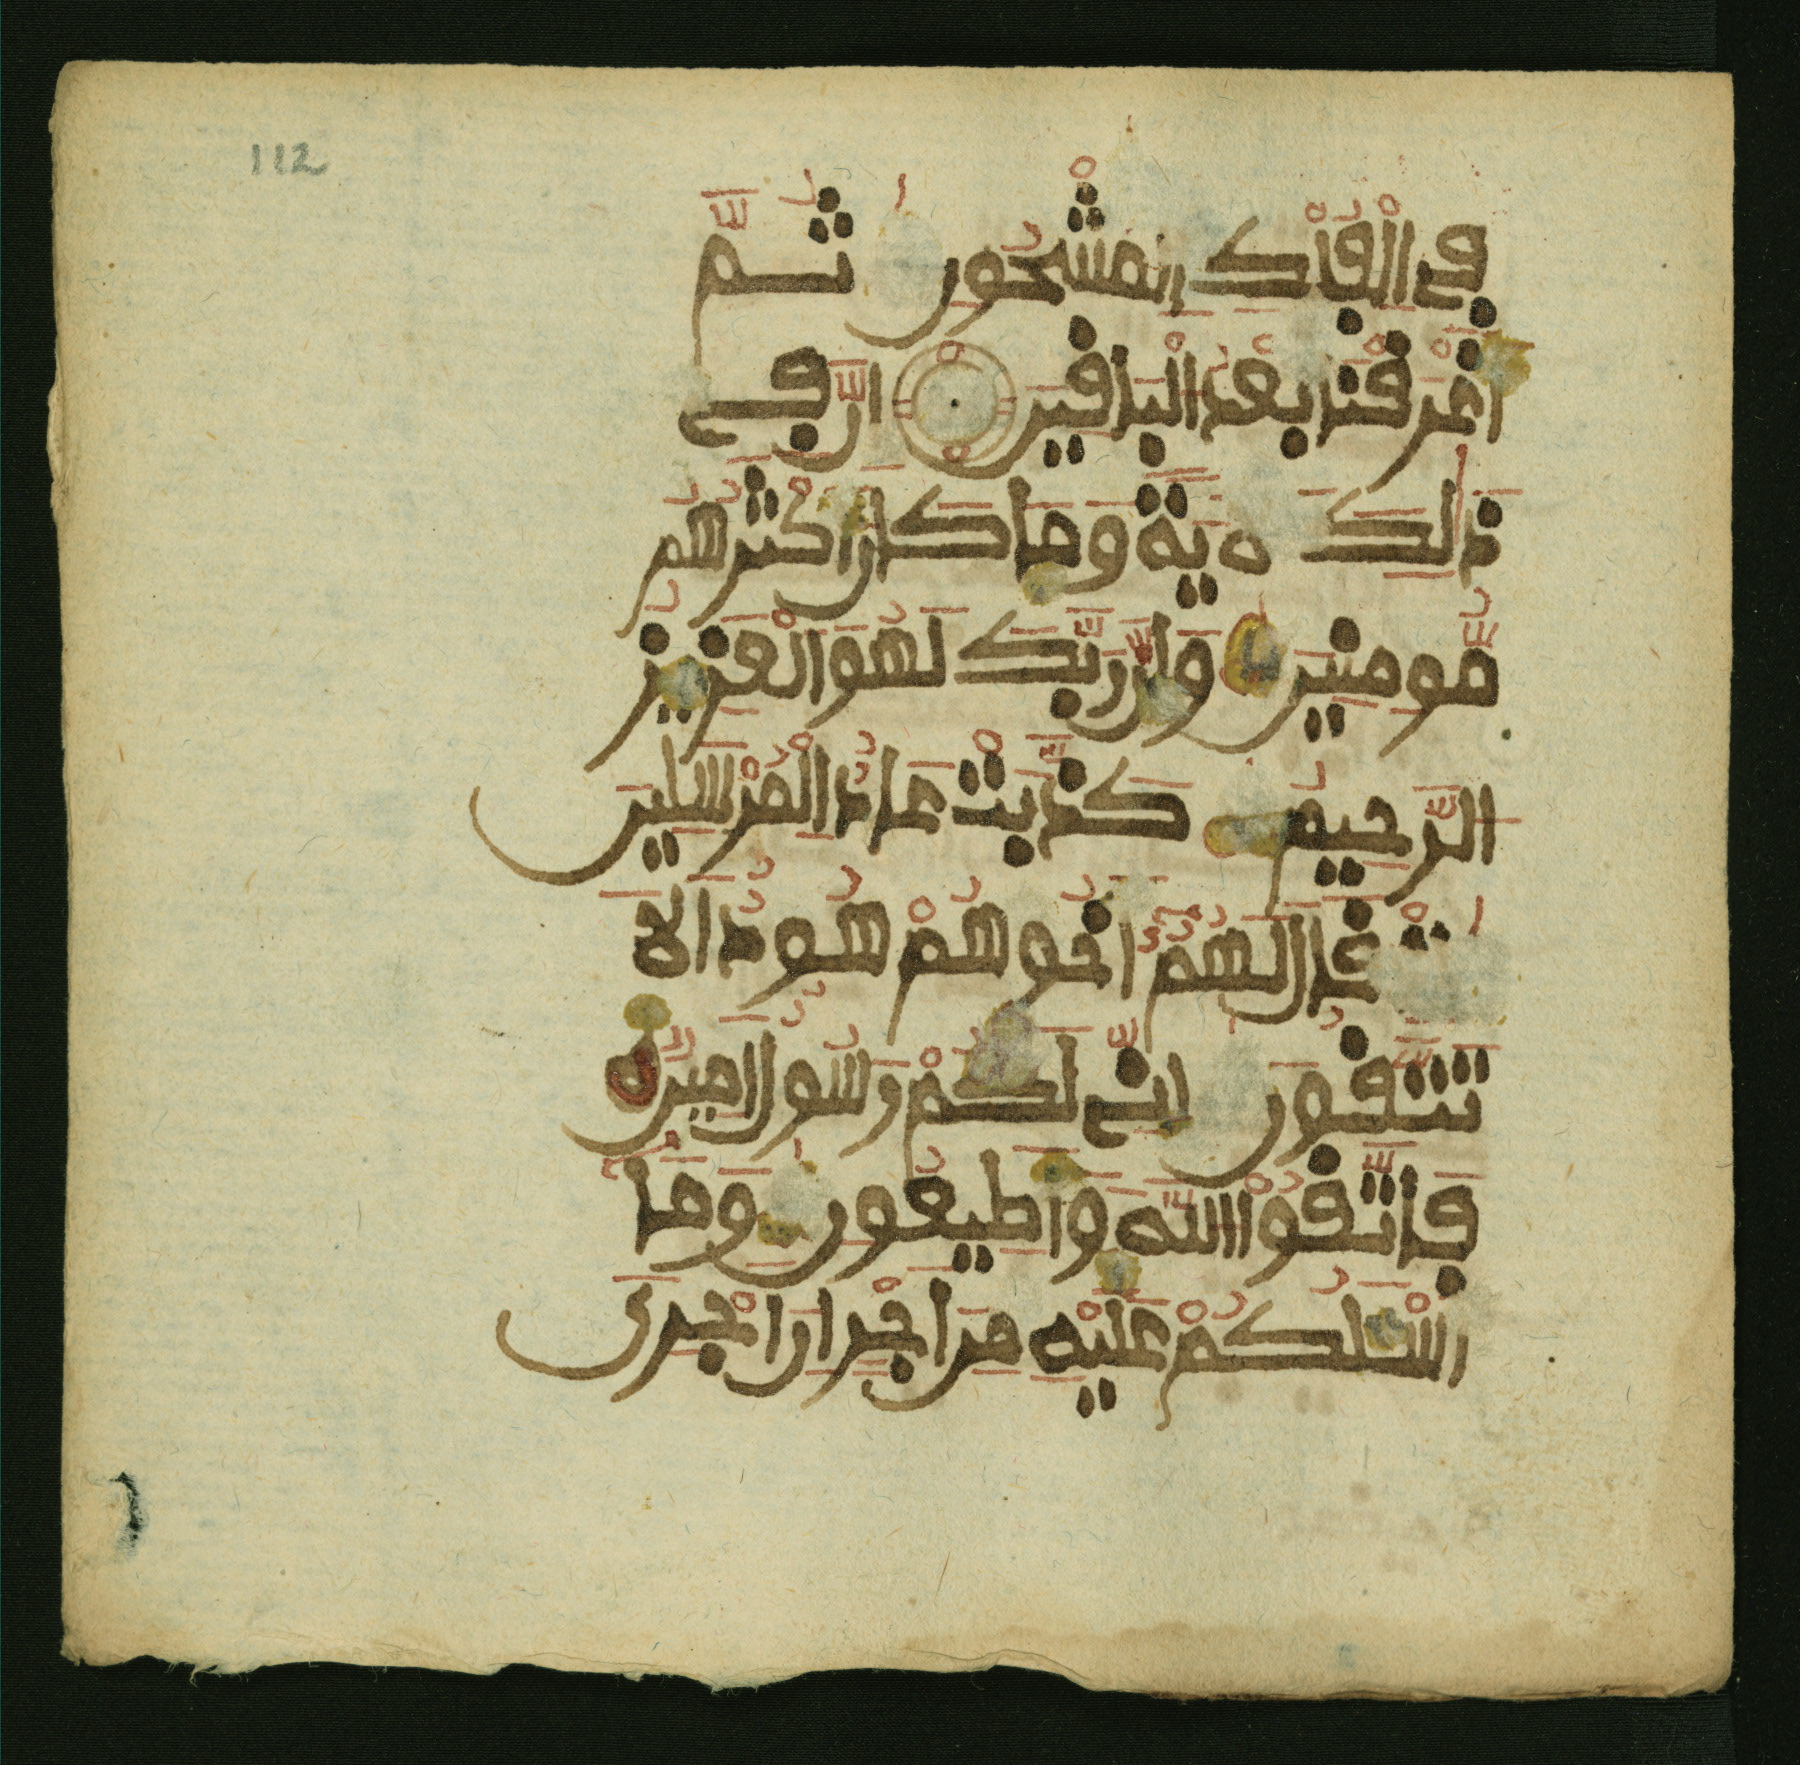 112
في الْفُلْكِ الْمَشْحُونِ ثُمَّ
أَغْرَقْنَا بَعْدُ الْبَاقِينَ إِنَّ فِي
ذَلِكَ ءَلَايَةً وَمَا كَانَ أَكْثَرُهُم
مُّومِنِينَ وَإِنَّ رَبَّكَ لَهُوَ الْعَزِيزُ
الرَّحِيمُ كَذَّبَتْ عَادٌ الْمُرْسَلِينَ
إِذْ قَالَ لَهُمْ أَخُوهُمْ هُودٌ أَلَا
تَتَّقُونَ إِنِّي لَكُمْ رَسُولٌ أَمِينٌ
فَاتَّقُوا اللَّهَ وَأَطِيعُونِ وَمَا
أَسْـَٔلُكُمْ عَلَيْهِ مِنْ أَجْرٍ إِنْ أَجْرِيَ